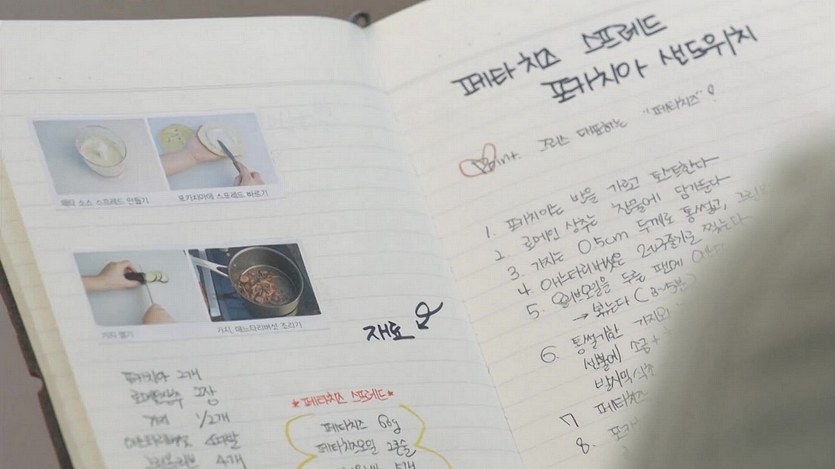 페타 소스 스프레드 만들기
포카치아에 스프레드 바르기
가지 썰기
가지, 애느타리버섯 조리기
재료
포카치아 2개
로메인상추 2장
가지 1/2개
애느타리버섯 4다발
4개
★페타치즈 스프레드★
페타치즈 60g
페타치즈오일 2큰술
5개
페타치즈 스프레드
포카치아 샌드위치
Point. 그리스 대표하는 "페타치즈"!
1. 포카치아는 반을 가르고 토스트한다
2. 로메인 상추는 찬물에 담가둔다
3. 가지는 0.5cm 두께로 통썰고,
4. 애느타리버섯은 2~3줄기로 찢는다
5. 올리브오일을 두른 팬에
→ 볶는다 (3~5분)
6. 통썰기한 가지와
센불에 소금 +
발사믹/식초
7 페타치즈
8. 포카